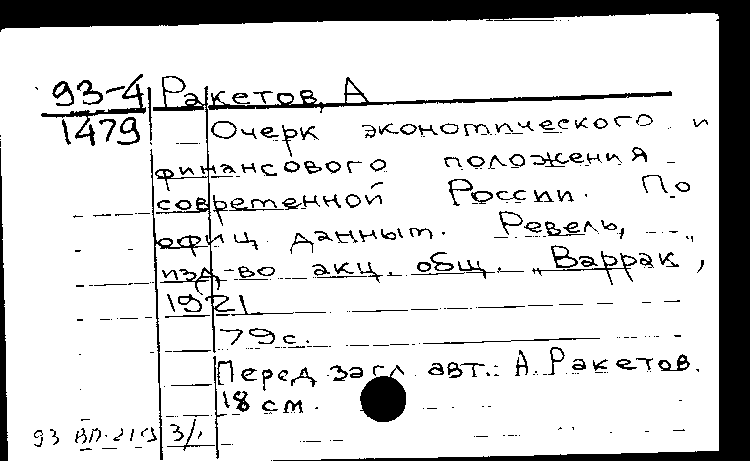 93-4 Ракетов, А
1479 Очерк экономического и
финансового положения
современной России. По
офиц. данным. Ревель,
изд-во акц. общ. „Варрак",
1921
79 с.
Перед загл авт.: А. Ракетов.
18 см.
93 3/1